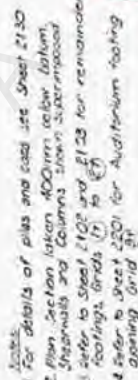 Notes
1. For details of piles and caps see Sheet 2130
2. Plan Section taken 400mm below datum
Shearwalls and Columns shown superimposed
Refer to Sheet 2102 and 2103 for remainder
footings Grids to
Refer to Sheet 2201 for Auditorium footing
Grid